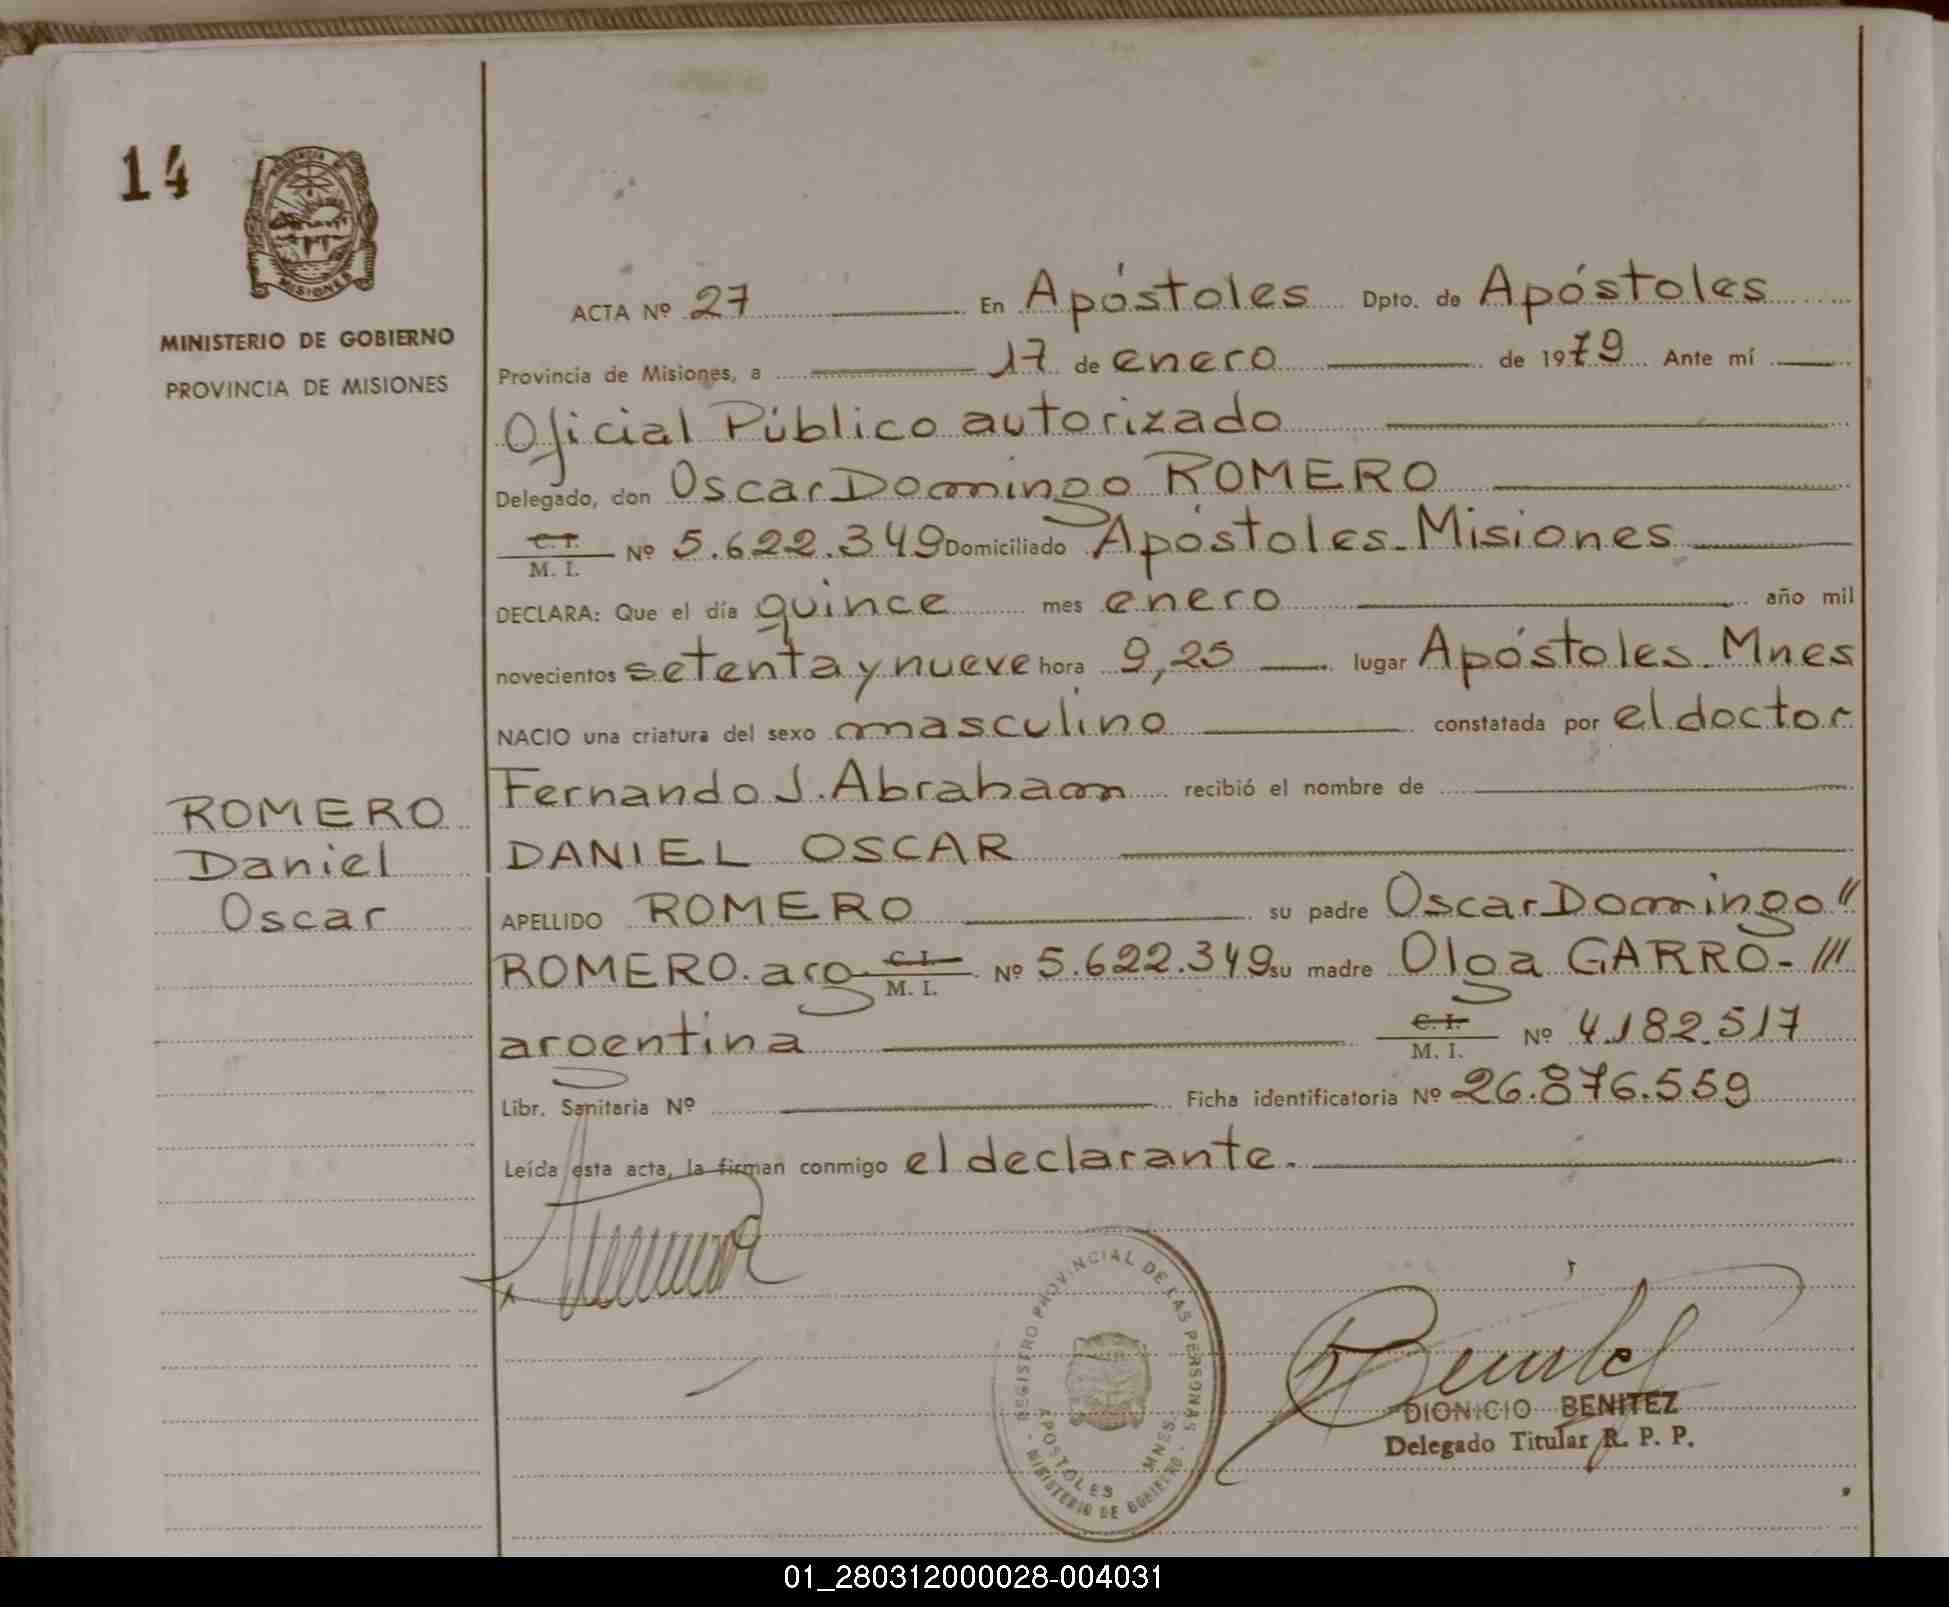 14
PROVINCIA DE
MISIONES
MINISTERIO DE GOBIERNO
PROVINCIA DE MISIONES
ROMERO
Daniel
Oscar
ACTA Nº 27 En Apóstoles Dpto. de Apóstoles
Provincia de Misiones, a 17 de enero de 1979 Ante mí
Oficial Público autorizado
Delegado, don Oscar Domingo ROMERO
C. I.
M. I. Nº 5.622.349 Domiciliado Apóstoles-Misiones
DECLARA: Que el día quince mes enero año mil
novecientos setenta y nueve hora 9,25 lugar Apóstoles-Mnes
NACIO una criatura del sexo masculino constatada por el doctor
Fernando J. Abraham recibió el nombre de
DANIEL OSCAR
APELLIDO ROMERO su padre Oscar Domingo //
ROMERO. arg. C. I. M. I. Nº 5.622.349 su madre Olga GARRO- ///
argentina C. I. M. I. Nº 4.182.517
Libr. Sanitaria Nº Ficha identificatoria Nº 26.876.559
Leída esta acta, la firman conmigo el declarante.
REGISTRO PROVINCIAL DE LAS PERSONAS
APOSTOLES MNES
MINISTERIO DE GOBIERNO
DIONICIO BENITEZ
Delegado Titular R. P. P.
01_280312000028-004031